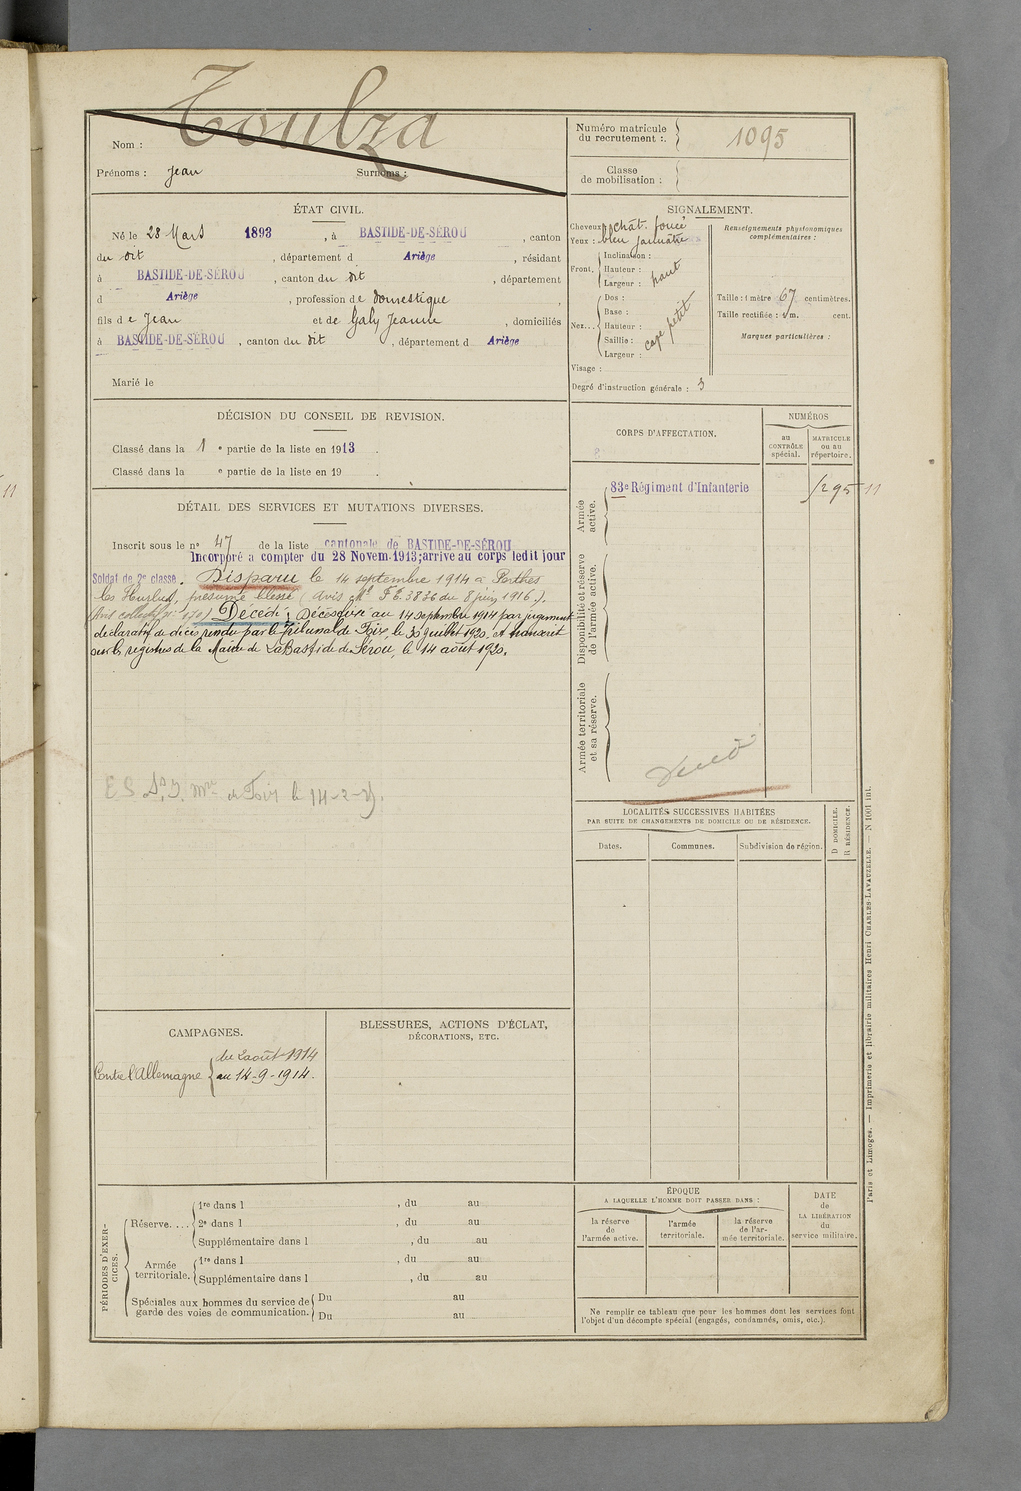 Toulza
Nom :
Prénoms : Jean Surnoms :
Numéro matricule du recrutement : 1095
Classe de mobilisation :
ÉTAT CIVIL.
Né le 28 Mars 1893, à BASTIDE-DE-SÉROU, canton
du dit, département d Ariège, résidant
à BASTIDE-DE-SÉROU, canton du dit, département
d Ariège, profession de domestique,
fils de Jean et de Galy Jeanne, domiciliés
à BASTIDE-DE-SÉROU, canton du dit, département d Ariège
Marié le
SIGNALEMENT.
Cheveux chât. foncé
Yeux : bleu jaunâtre
Front. Inclinaison :
Hauteur :
Largeur : haut
Nez... Dos :
Base :
Hauteur :
Saillie :
Largeur : petit
Visage :
Degré d'instruction générale : 3
Renseignements physionomiques complémentaires :
Taille : 1 mètre 67 centimètres.
Taille rectifiée : 1 m. cent.
Marques particulières :
DÉCISION DU CONSEIL DE REVISION.
Classé dans la 1 e partie de la liste en 1913.
Classé dans la e partie de la liste en 19 .
DÉTAIL DES SERVICES ET MUTATIONS DIVERSES.
Inscrit sous le n° 47 de la liste cantonale de BASTIDE-DE-SÉROU
Incorporé à compter du 28 Novem. 1913; arrive au corps ledit jour
Soldat de 2e classe. Disparu le 14 septembre 1914 à Perthes
les Hurlus, présumé blessé (Avis Mel F 3836 du 8 juin 1916.).
Décédé; Décès fixé au 14 septembre 1914 par jugement
déclaratif de décès rendu par le Tribunal de Foix, le 30 juillet 1920, et transcrit
sur les registres de la Mairie de LaBastide de Sérou, le 14 août 1920.
de Foix le 14-2-
CORPS D'AFFECTATION.
NUMÉROS
au CONTRÔLE spécial.
MATRICULE ou au répertoire.
Armée active.
83e Régiment d'Infanterie
1295 11
Disponibilité et réserve de l'armée active.
Armée territoriale et sa réserve.
LOCALITÉS SUCCESSIVES HABITÉES
PAR SUITE DE CHANGEMENTS DE DOMICILE OU DE RÉSIDENCE.
Dates. Communes. Subdivision de région. D DOMICILE. R RÉSIDENCE.
CAMPAGNES.
Contre l'Allemagne du 2 août 1914
au 14-9-1914.
BLESSURES, ACTIONS D'ÉCLAT,
DÉCORATIONS, ETC.
PÉRIODES D'EXERCICES.
Réserve.... 1re dans l , du au
2e dans l , du au
Supplémentaire dans l , du au
Armée territoriale. 1re dans l , du au
Supplémentaire dans l , du au
Spéciales aux hommes du service de garde des voies de communication. Du au
Du au
ÉPOQUE
A LAQUELLE L'HOMME DOIT PASSER DANS :
la réserve de l'armée active.
l'armée territoriale.
la réserve de l'armée territoriale.
DATE de LA LIBÉRATION du service militaire.
Ne remplir ce tableau que pour les hommes dont les services font
l'objet d'un décompte spécial (engagés, condamnés, omis, etc.).
Paris et Limoges. — Imprimerie et librairie militaires Henri CHARLES-LAVAUZELLE. — N 1001 int.
11